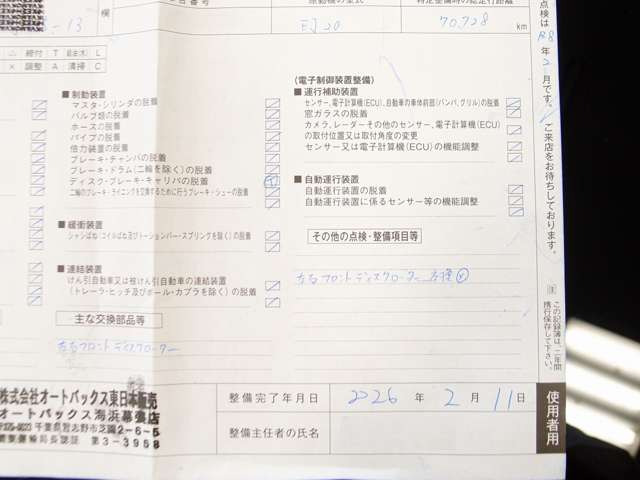 EJ20
70,728 km
欄
-13
△ 締付 T 給油(水) L
× 調整 A 清掃 C
点検は R8年2月です。ご来店をお待ちしております。
■制動装置
マスタ・シリンダの脱着
バルブ類の脱着
ホースの脱着
パイプの脱着
倍力装置の脱着
ブレーキ・チャンバの脱着
ブレーキ・ドラム(二輪を除く)の脱着
ディスク・ブレーキ・キャリパの脱着
二輪のブレーキ・ライニングを交換するために行うブレーキ・シューの脱着
■緩衝装置
シャシばね(コイルばね及びトーションバー・スプリングを除く)の脱着
■連結装置
けん引自動車又は被けん引自動車の連結装置
(トレーラ・ヒッチ及びボール・カプラを除く)の脱着
主な交換部品等
左右フロントディスクローター
(電子制御装置整備)
■運行補助装置
センサー、電子計算機(ECU)、自動車の車体前部(バンパ、グリル)の脱着
窓ガラスの脱着
カメラ、レーダーその他のセンサー、電子計算機(ECU)
の取付位置又は取付角度の変更
センサー又は電子計算機(ECU)の機能調整
■自動運行装置
自動運行装置の脱着
自動運行装置に係るセンサー等の機能調整
その他の点検・整備項目等
左右フロントディスクローター
注 この記録簿は、二年間
携行保存して下さい。
株式会社オートバックス東日本販売
オートバックス海浜幕張店
千葉県習志野市芝園2-6-5
第3-3958
整備完了年月日 2026年2月11日
整備主任者の氏名
使用者用